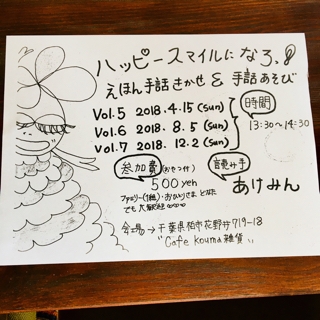 ハッピースマイルになろ。
えほん手話きかせ & 手話あそび
Vol.5 2018.4.15 (sun)
Vol.6 2018.8.5 (sun)
Vol.7 2018.12.2 (sun)
時間
13:30〜14:30
参加費 (おやつ付)
500yen
ファミリー(1組)・おひとりさま どなた
でも大歓迎∞∞
読み手
あけみん
会場→千葉県柏市花野井719-18
"Cafe kouma雑貨"